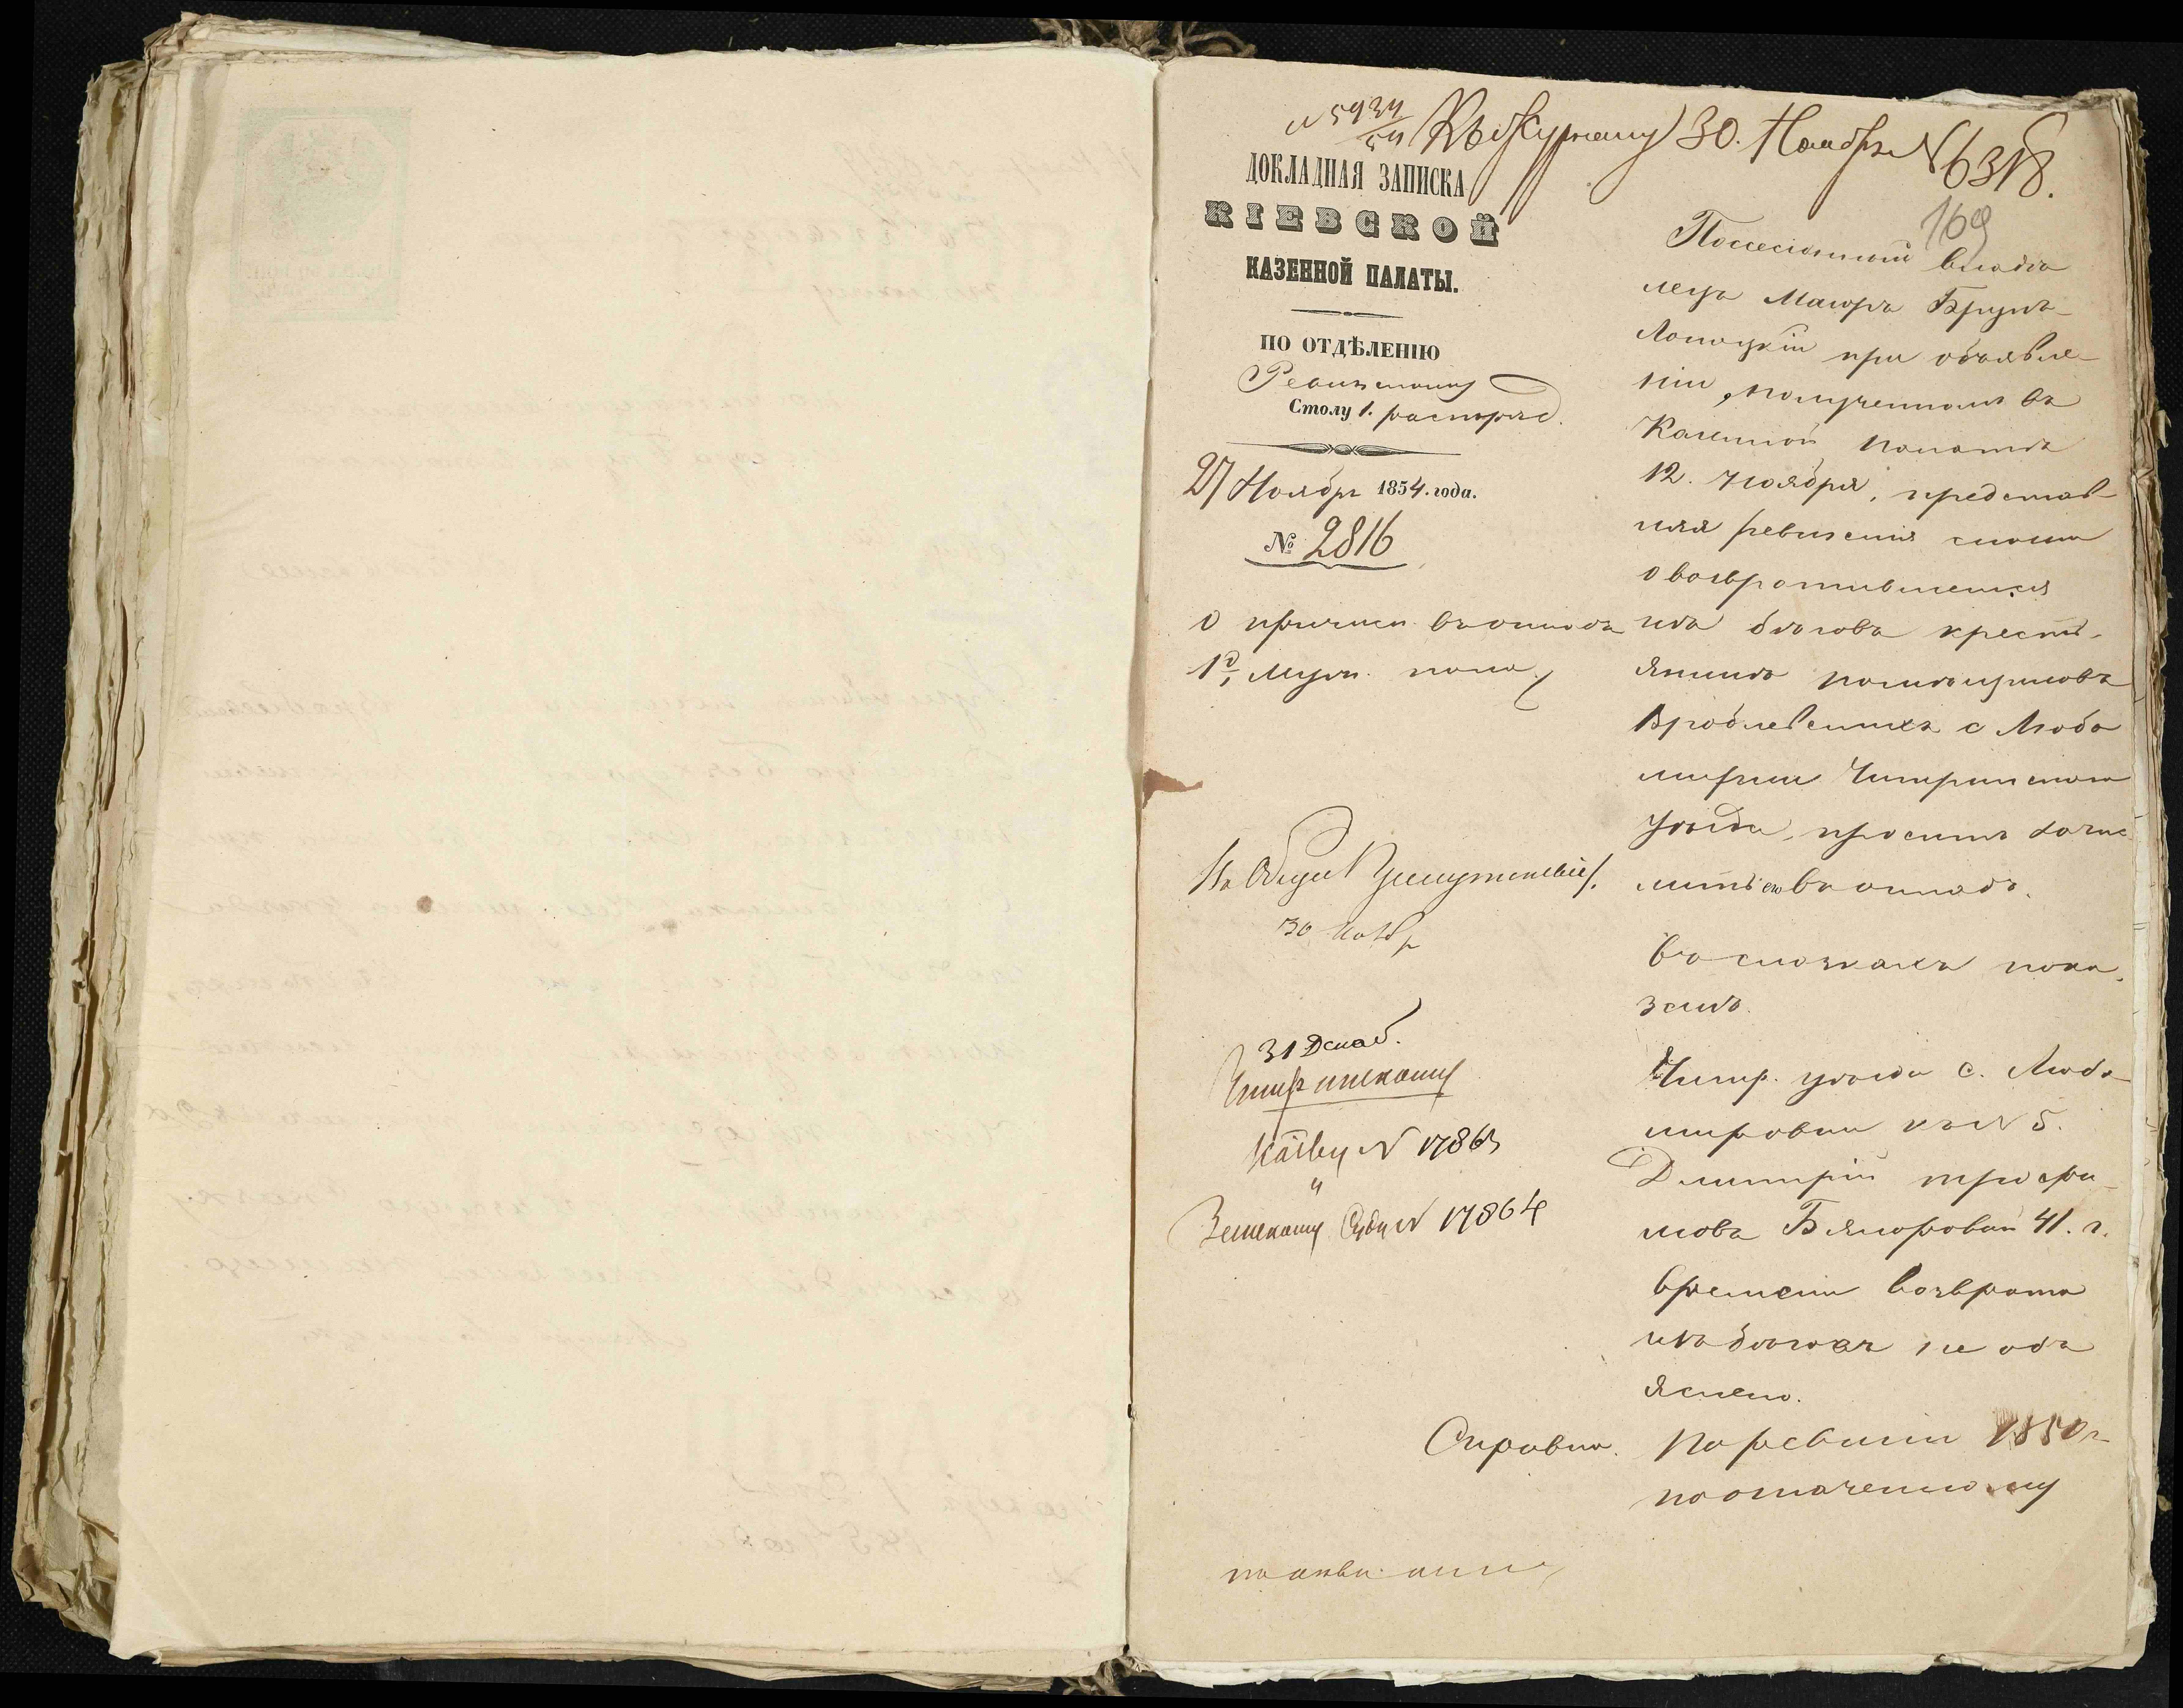 N 5934/54 Къ Журналу 30. Ноября N 6318.
169
ДОКЛАДНАЯ ЗАПИСКА
КІЕВСКОЙ
КАЗЕННОЙ ПАЛАТЫ.
ПО ОТДѢЛЕНІЮ
Ревизскому
Столу 1. распоряд.
27 Ноября 1854. года.
№ 2816
О причисл. въ окладъ
1й, муж. пола
30 Ноябр
31 Декаб.
Чигиринскому
Кázву N 17863
"
Земскому Суду N 17864
Поссесіонный владѣ
лецъ Маіоръ Брунъ-
при объявле-
ніи, полученномъ въ
Казенной Палатѣ
12. Ноября, представ-
ляя ревизскія сказки
о возвратившемся
изъ бѣговъ кресть-
янинѣ помѣщиковъ
Врублевскихъ с Любо
мирки Чигиринскаго
уѣзда, проситъ зачис
лить его въ окладъ.
Въ сказкахъ пока-
зано.
Чигир. уѣзда с. Любо-
мировки къ N 5.
Дмитрій Трофи-
мовъ 41. г.
времени возврата
изъ бѣговъ не объ
яснено.
Справка. По ревизіи 1850 г
по означенному